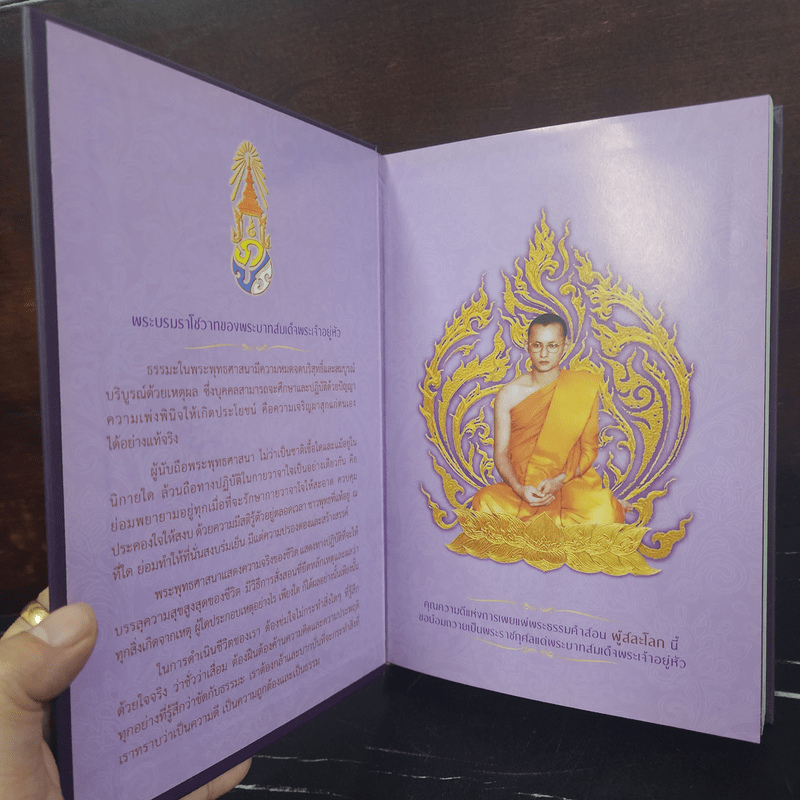 พระบรมราโชวาทของพระบาทสมเด็จพระเจ้าอยู่หัว
ธรรมะในพระพุทธศาสนามีความหมดจดบริสุทธิ์และสมบูรณ์
บริบูรณ์ด้วยเหตุผล ซึ่งบุคคลสามารถจะศึกษาและปฏิบัติด้วยปัญญา
ความเพ่งพินิจให้เกิดประโยชน์ คือความเจริญผาสุกแก่ตนเอง
ได้อย่างแท้จริง
ผู้นับถือพระพุทธศาสนา ไม่ว่าเป็นชาติเชื้อใดและแม้อยู่ใน
นิกายใด ล้วนถือทางปฏิบัติในกายวาจาใจเป็นอย่างเดียวกัน คือ
ย่อมพยายามอยู่ทุกเมื่อที่จะรักษากายวาจาใจให้สะอาด ควบคุม
ประคองใจให้สงบ ด้วยความมีสติรู้ตัวอยู่ตลอดเวลา ชาวพุทธที่แท้อยู่ ณ
ที่ใด ย่อมทำให้ที่นั่นสงบร่มเย็น มีแต่ความปรองดองและสร้างสรรค์
พระพุทธศาสนาแสดงความจริงของชีวิต แสดงทางปฏิบัติที่จะให้
บรรลุความสุขสูงสุดของชีวิต มีวิธีการสั่งสอนที่ยึดหลักเหตุและผลว่า
ทุกสิ่งเกิดจากเหตุ ผู้ใดประกอบเหตุอย่างไร เพียงใด ก็ได้ผลอย่างนั้นเพียงนั้น
ในการดำเนินชีวิตของเรา ต้องข่มใจไม่กระทำสิ่งใดๆ ที่รู้สึก
ด้วยใจจริง ว่าชั่วว่าเสื่อม ต้องฝืนต้องต้านความคิดและความประพฤติ
ทุกอย่างที่รู้สึกว่าขัดกับธรรมะ เราต้องกล้าและบากบั่นที่จะกระทำสิ่งที่
เราทราบว่าเป็นความดี เป็นความถูกต้องและเป็นธรรม
คุณความดีแห่งการเผยแผ่พระธรรมคำสอน ผู้สละโลก นี้
ขอน้อมถวายเป็นพระราชกุศลแด่พระบาทสมเด็จพระเจ้าอยู่หัว